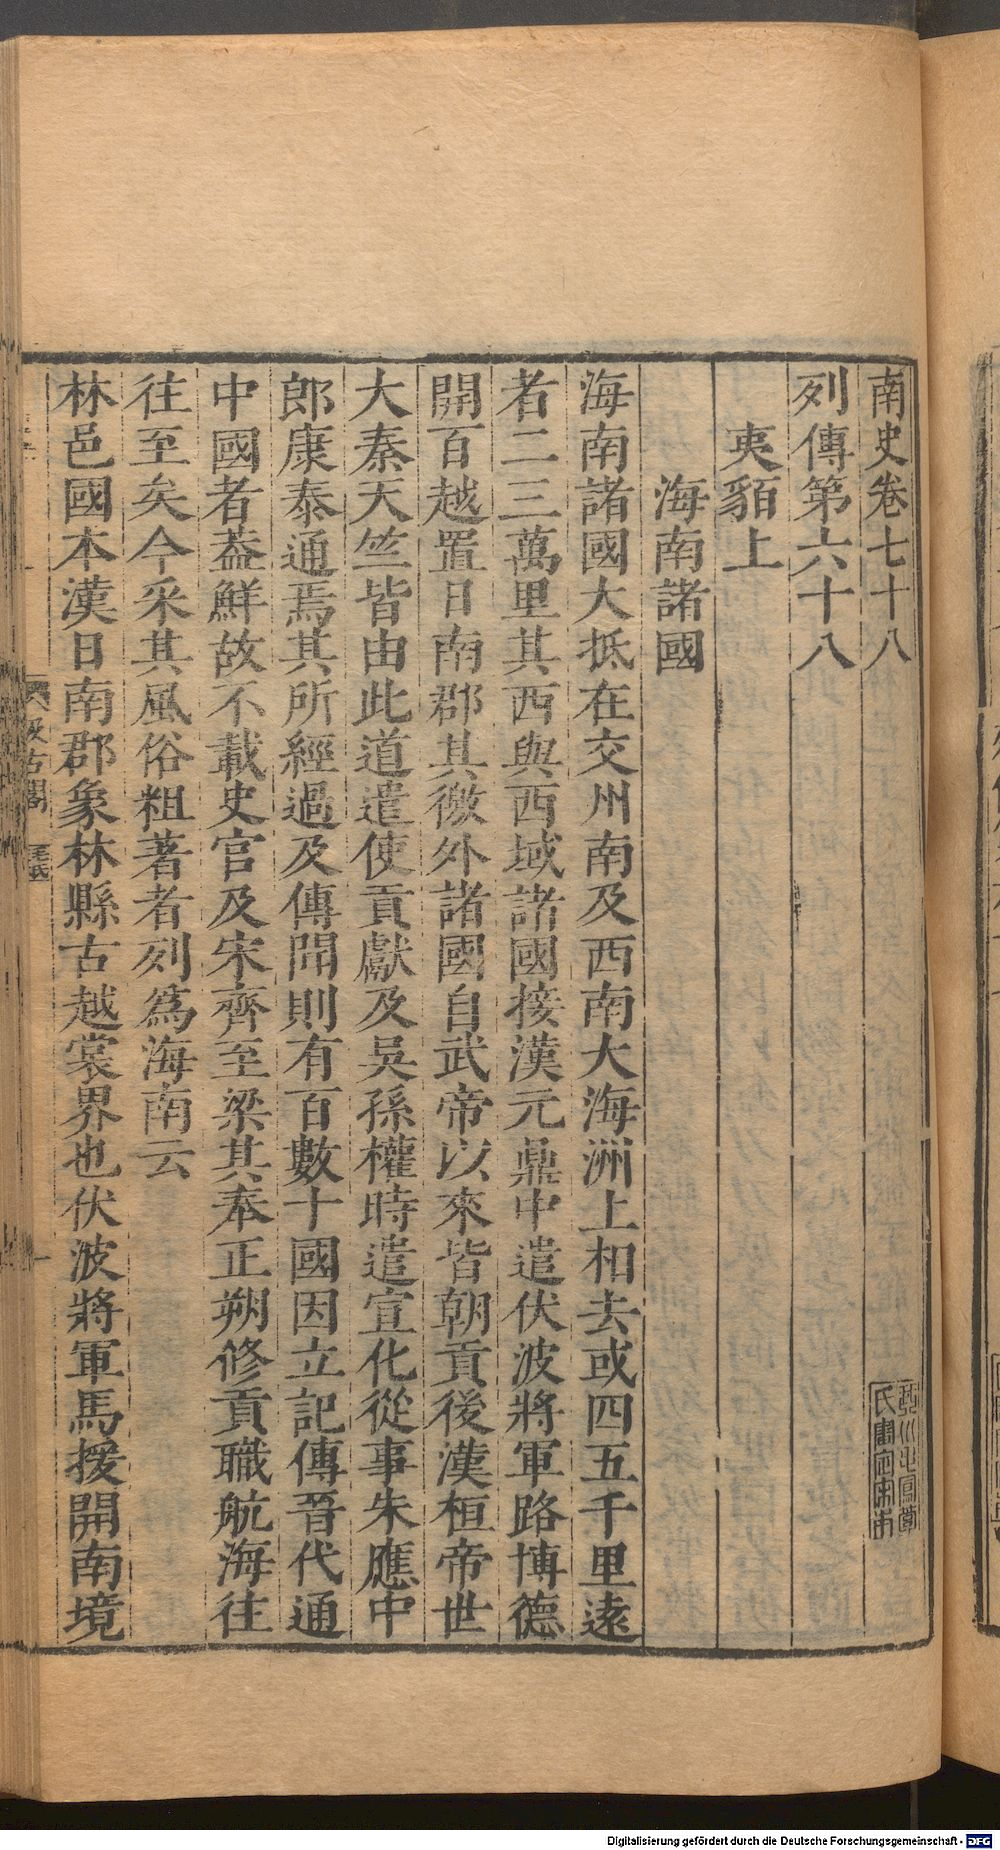 南史卷七十八
列傳第六十八
夷貊上
海南諸國
海南諸國大抵在交州南及西南大海洲上相去或四五千里遠
者二三萬里其西與西域諸國接漢元鼎中遣伏波將軍路博德
開百越置日南郡其徼外諸國自武帝以來皆朝貢後漢桓帝世
大秦天竺皆由此道遣使貢獻及吳孫權時遣宣化從事朱應中
郎康泰通焉其所經過及傳聞則有百數十國因立記傳晉代通
中國者葢鮮故不載史官及宋齊至梁其奉正朔修貢職航海往
往至矣今采其風俗粗著者列爲海南云
林邑國本漢日南郡象林縣古越裳界也伏波將軍馬援開南境
汲古閣
Digitalisierung gefördert durch die Deutsche Forschungsgemeinschaft - DFG